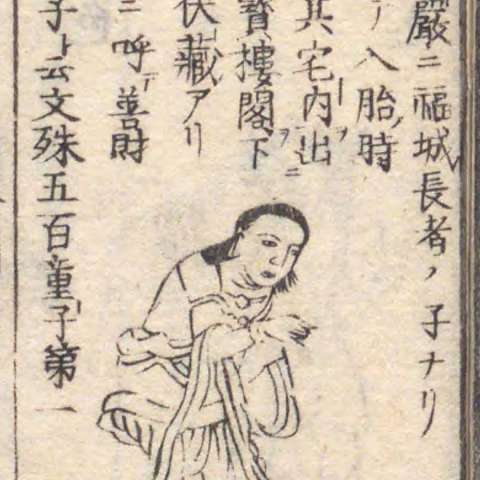 嚴ニ福城長者ノ子ナリ
入胎ノ時
其宅内ニ出ヲ
寳摟閣ヲ下ニ
伏藏アリ
ニ呼テ善財
子ト云文殊五百童子ノ第一